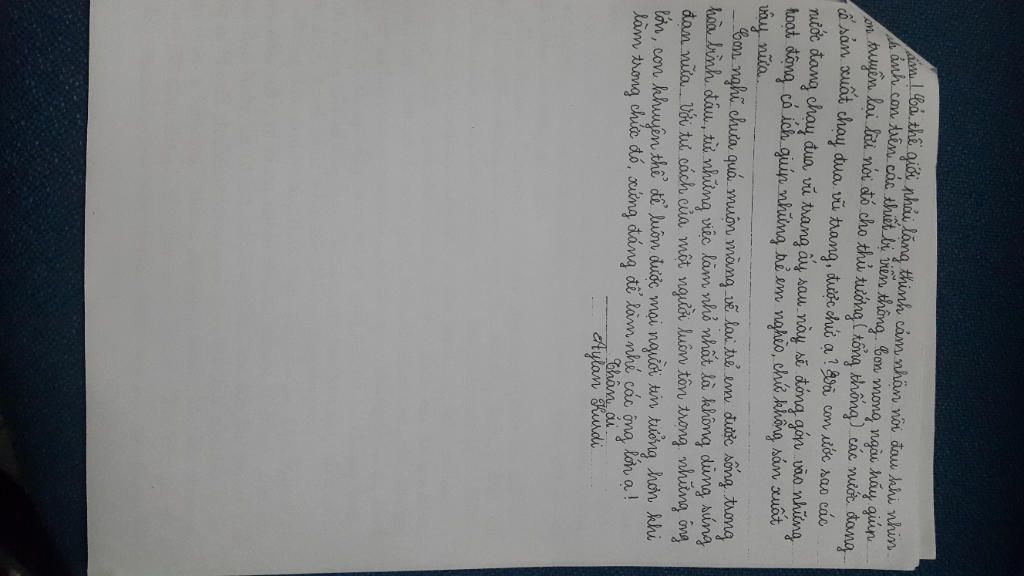 lắm! Cả thế giới phải lặng thinh cảm nhận nỗi đau khi nhìn
ảnh con trên các thiết bị viễn thông. Con mong ngài hãy giúp
con truyền lại lời nói đó cho thủ tướng (tổng thống) các nước đang
cố sản xuất chạy đua vũ trang, được chứ ạ? Và con ước sao các
nước đang chạy đua vũ trang ấy sau này sẽ đóng góp vào những
hoạt động có ích giúp những trẻ em nghèo, chứ không sản xuất
vậy nữa.
Con nghĩ chưa quá muộn màng vẽ lại trẻ em được sống trong
hòa bình đâu, từ những việc làm nhỏ nhất là không dùng súng
đạn nữa. Với tư cách của một người luôn tôn trọng những ông
lớn, con khuyên thế để luôn được mọi người tin tưởng hơn khi
làm trong chức đó, xứng đáng để làm nhé các ông lớn ạ!
Thân ái
Aylan Kurdi